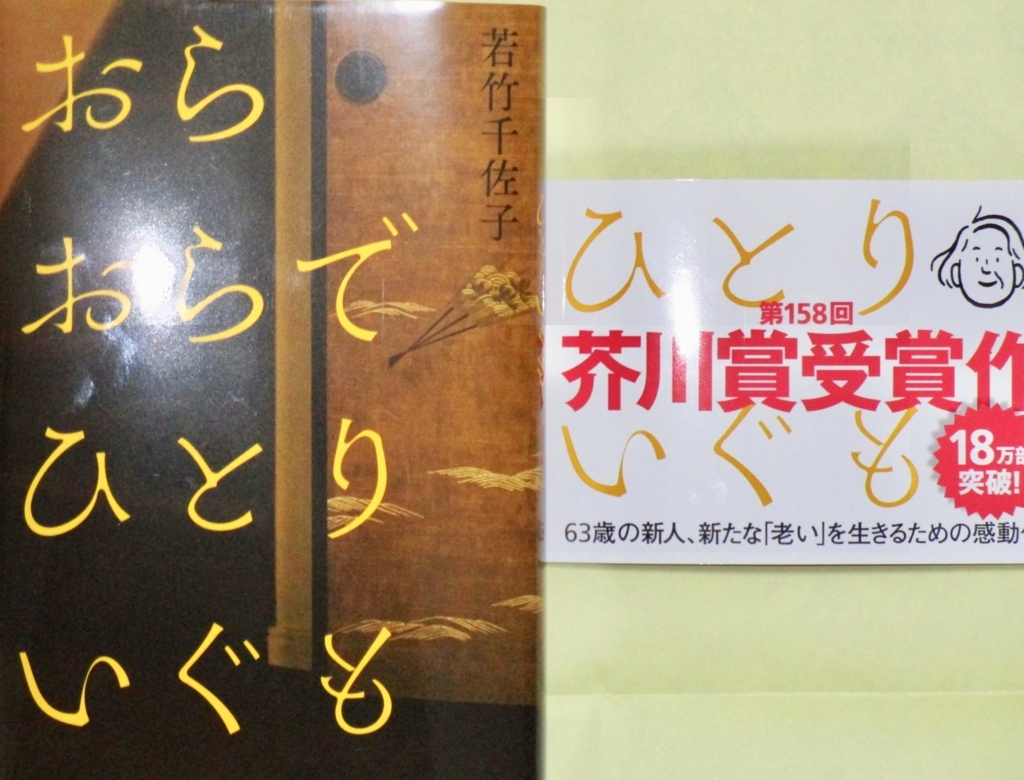 おら
おらで
ひとり
いぐも
若竹千佐子
ひとり
第158回
芥川賞受賞作
いぐも
18万部
突破!
63歳の新人、新たな「老い」を生きるための感動